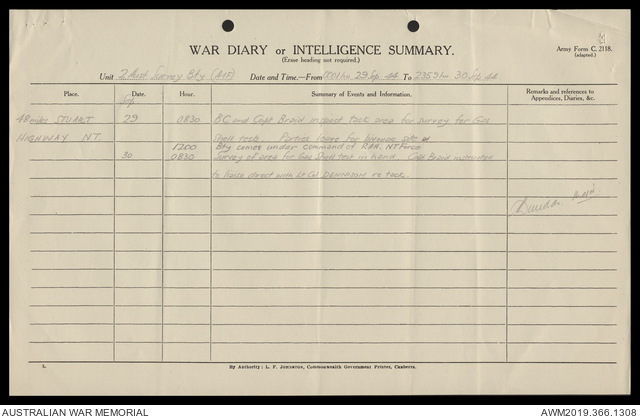 WAR DIARY or INTELLIGENCE SUMMARY.
(Erase heading not required.)
Army Form C. 2118.
(adapted.)
Unit 2 Aust Survey Bty (AIF) Date and Time.—From 0001 hr 29 Sep. 44 To 2359 hr 30 Sep 44
Place.
Date.
Hour.
Summary of Events and Information.
Remarks and references to
Appendices, Diaries, &c.
Sep
48 miles STUART 29 0830 BC and Capt Braid inspect task area for survey for Gas
HIGHWAY NT. Shell test. Parties leave for bivouac site
1200 Bty comes under command of RAA. NT Force
30 0830 Survey of area for Gas Shell test in hand. Capt Braid instructed
to liaise direct with Lt Col DENNISON re task.
L.
By Authority: L. F. Johnston, Commonwealth Government Printer, Canberra.
AUSTRALIAN WAR MEMORIAL
AWM2019.366.1308